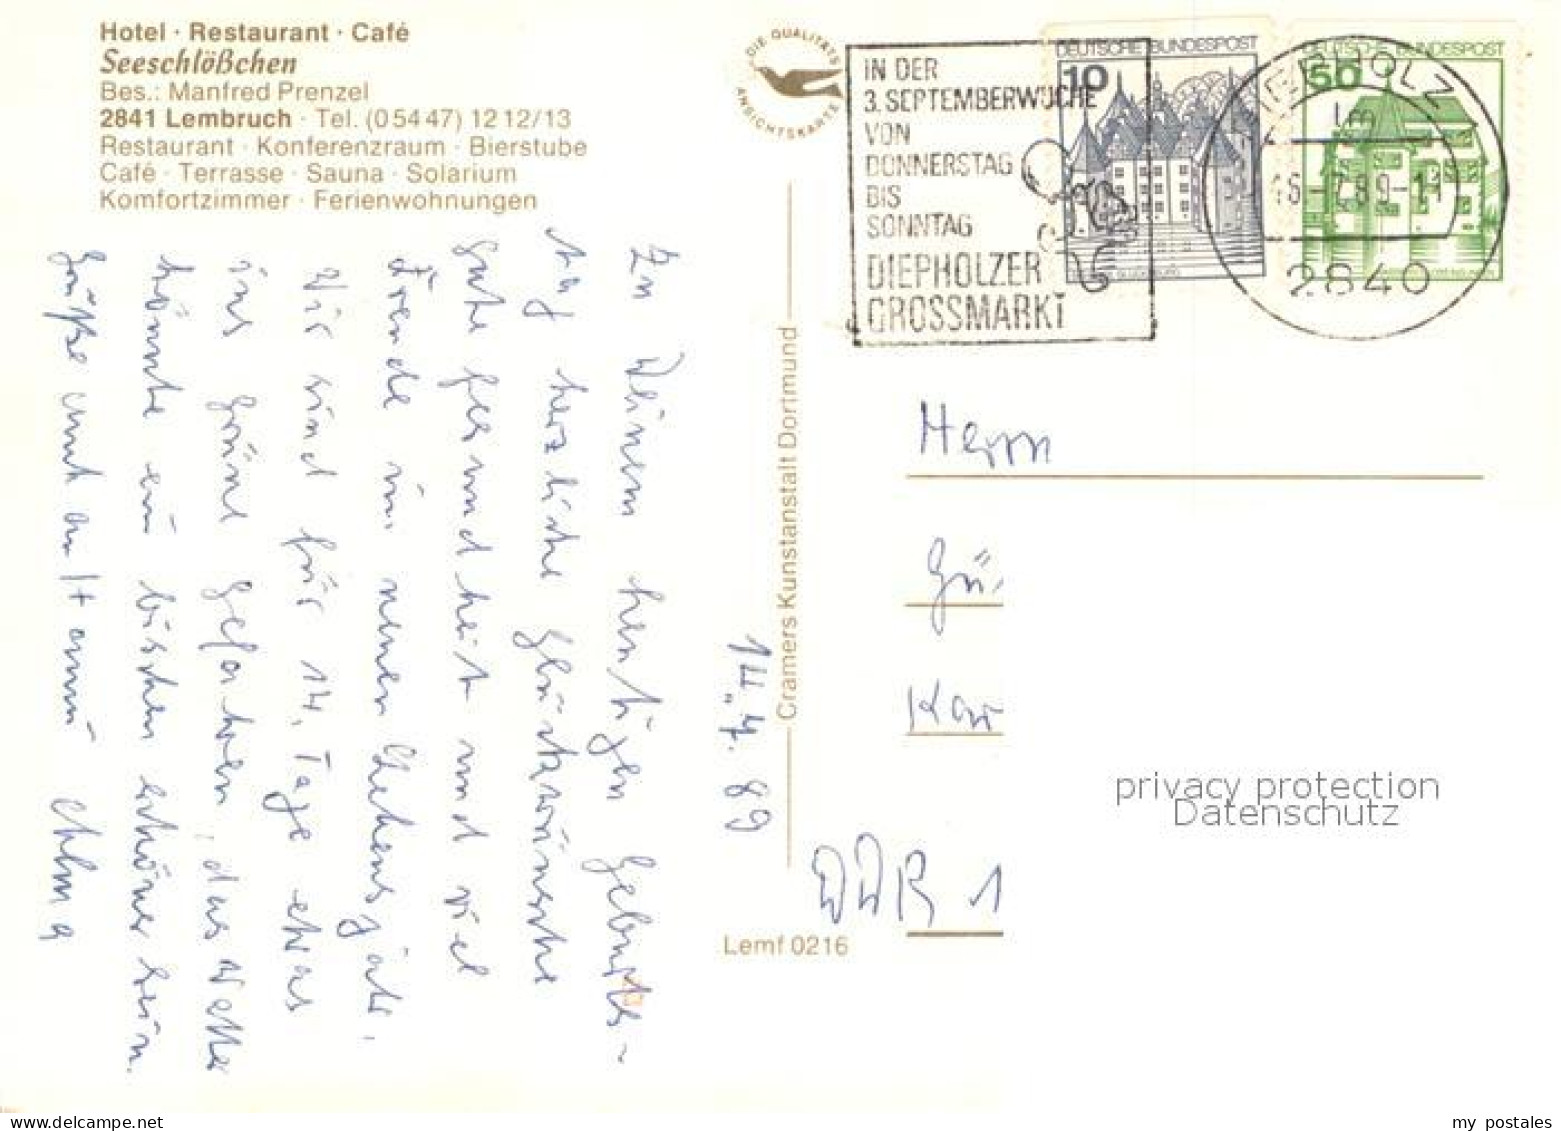 Hotel · Restaurant · Café
Seeschlößchen
Bes.: Manfred Prenzel
2841 Lembruch · Tel. (05447) 1212/13
Restaurant · Konferenzraum · Bierstube
Café · Terrasse · Sauna · Solarium
Komfortzimmer · Ferienwohnungen
DIE QUALITÄTS
ANSICHTSKARTE
IN DER
3. SEPTEMBERWOCHE
VON
DONNERSTAG
BIS
SONNTAG
DIEPHOLZER
GROSSMARKT
DEUTSCHE BUNDESPOST
10
DEUTSCHE BUNDESPOST
50
DIEPHOLZ
1m
2840
14.7.89
Zu Deinem heutigen Geburts-
tag herzliche Glückwünsche
gute Gesundheit und viel
Freude im neuen Lebensjahr.
Wir sind für 14 Tage etwas
ins Grüne gefahren, das Wetter
könnte ein bischen schöner sein.
Grüße
Cramers Kunstanstalt Dortmund
Herrn
Gü
Kar
DDR 1
Lemf 0216
privacy protection
Datenschutz
my postales